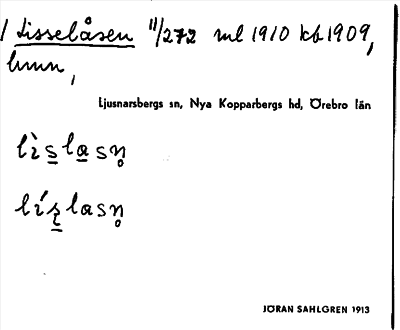 / Lisselåsen 11/272 ml 1910 kb 1909,
hmn,
Ljusnarsbergs sn, Nya Kopparbergs hd, Örebro län
lìs̲la̲sn̥
lís̲lasn̥
JÖRAN SAHLGREN 1913